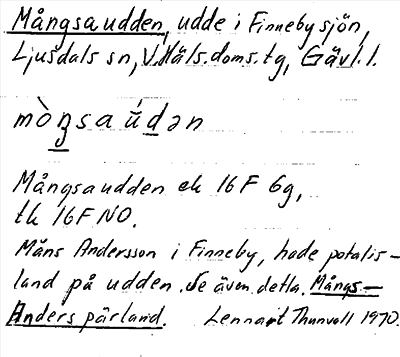 Mångsaudden, udde i Finnebysjön,
Ljusdals sn, V.Häls.doms.tg, Gävl.l.
mòŋsaúdən
Mångsaudden ek 16F 6g,
tk 16F NO.
Måns Andersson i Finneby, hade potatis-
land på udden. Se även detta. Mångs-
Anders pärland. Lennart Thunvall 1970.